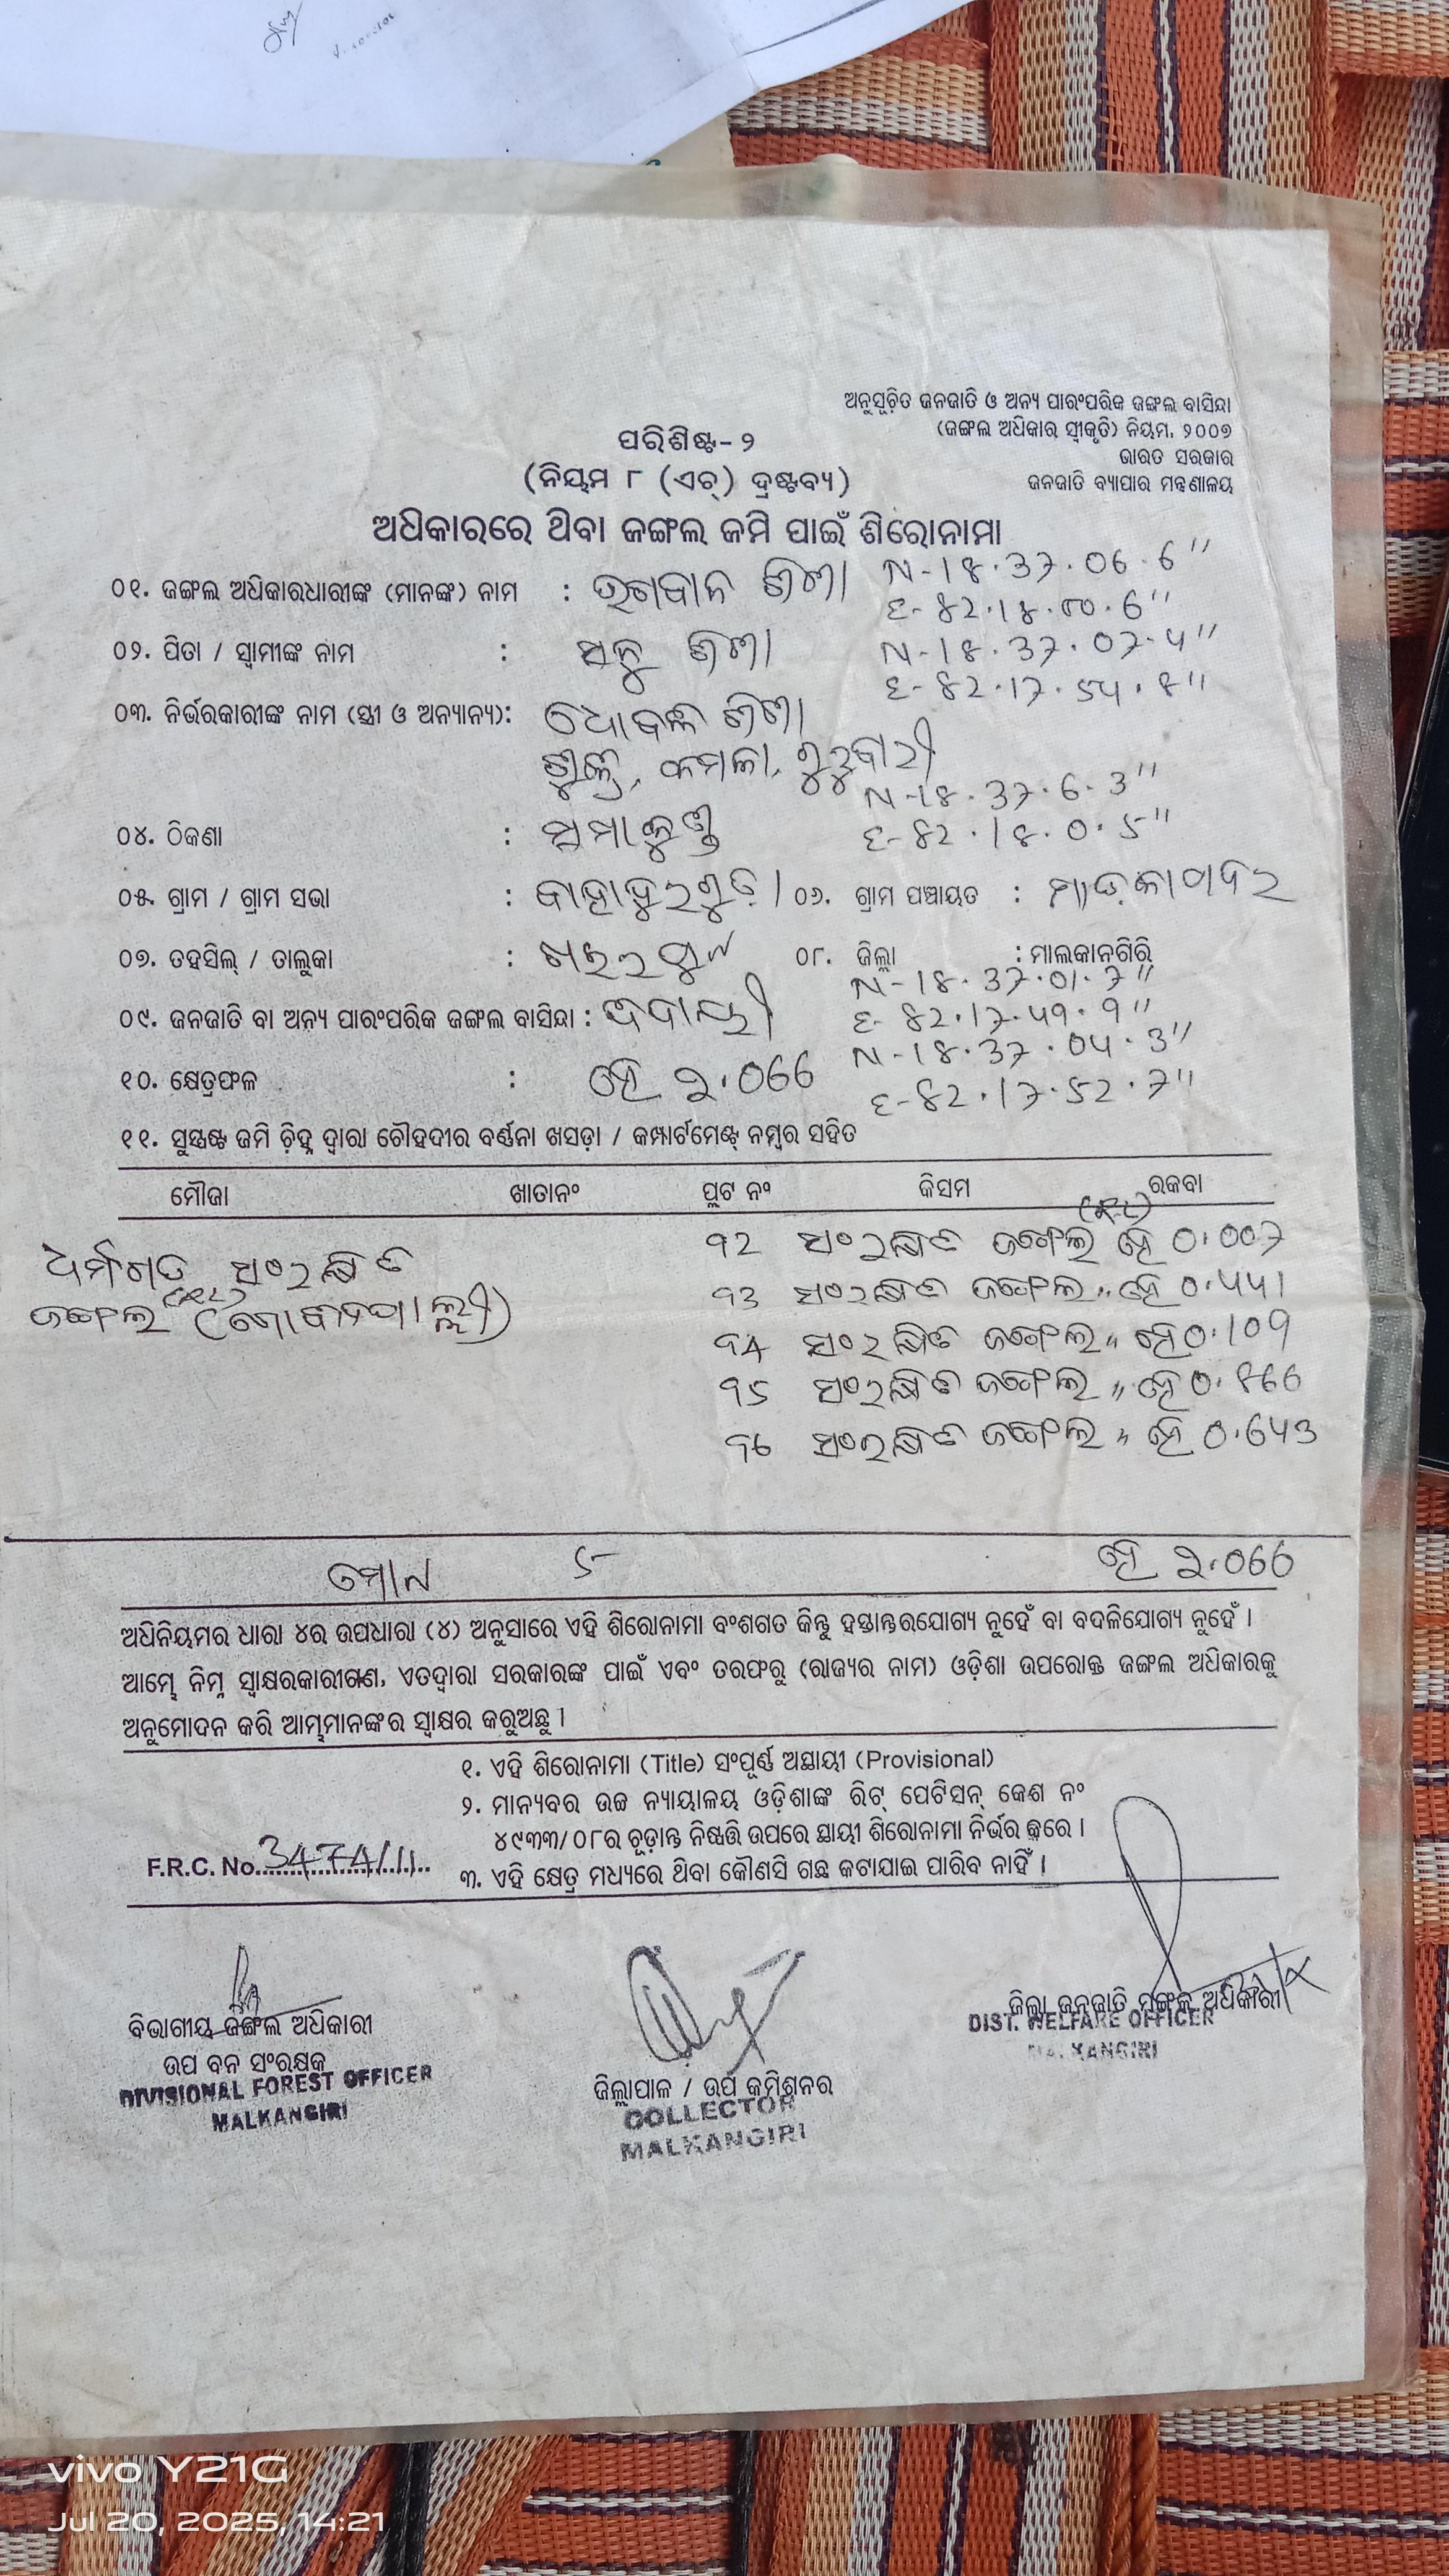 ଅନୁସୂଚିତ ଜନଜାତି ଓ ଅନ୍ୟ ପାରଂପରିକ ଜଙ୍ଗଲ ବାସିନ୍ଦା
(ଜଙ୍ଗଲ ଅଧିକାର ସ୍ୱୀକୃତି) ନିୟମ, ୨୦୦୭
ଭାରତ ସରକାର
ଜନଜାତି ବ୍ୟାପାର ମନ୍ତ୍ରଣାଳୟ
ପରିଶିଷ୍ଟ-୨
(ନିୟମ ୮ (ଏଚ୍) ଦ୍ରଷ୍ଟବ୍ୟ)
ଅଧିକାରରେ ଥିବା ଜଙ୍ଗଲ ଜମି ପାଇଁ ଶିରୋନାମା
୦୧. ଜଙ୍ଗଲ ଅଧିକାରଧାରୀଙ୍କ (ମାନଙ୍କ) ନାମ : ଭଗବାନ N-18.37.06.6"
୦୨. ପିତା / ସ୍ୱାମୀଙ୍କ ନାମ : N-18.37.07.4"
E-82.17.54.8"
୦୩. ନିର୍ଭରକାରୀଙ୍କ ନାମ (ସ୍ତ୍ରୀ ଓ ଅନ୍ୟାନ୍ୟ):
କମଳା, ଗୁରୁବାରୀ
N-18.37.6.3"
୦୪. ଠିକଣା : E-82.18.0.5"
୦୫. ଗ୍ରାମ / ଗ୍ରାମ ସଭା : ବାହାଦୁରଗୁଡ଼ା ୦୬. ଗ୍ରାମ ପଞ୍ଚାୟତ :
୦୭. ତହସିଲ୍ / ତାଲୁକା : ଖଇରପୁଟ ୦୮. ଜିଲ୍ଲା : ମାଲକାନଗିରି
N-18.37.01.7"
୦୯. ଜନଜାତି ବା ଅନ୍ୟ ପାରଂପରିକ ଜଙ୍ଗଲ ବାସିନ୍ଦା : E-82.17.49.9"
N-18.37.04.3"
୧୦. କ୍ଷେତ୍ରଫଳ : ହେ ୨.066 E-82.17.52.7"
୧୧. ସୁସ୍ପଷ୍ଟ ଜମି ଚିହ୍ନ ଦ୍ୱାରା ଚୌହଦୀର ବର୍ଣ୍ଣନା ଖସଡ଼ା / କମ୍ପାର୍ଟମେଣ୍ଟ୍ ନମ୍ବର ସହିତ
ମୌଜା ଖାତାନଂ ପ୍ଲଟ ନଂ କିସମ ରକବା
ଧର୍ମଗଡ଼ ସଂରକ୍ଷିତ 72 ସଂରକ୍ଷିତ ଜଙ୍ଗଲ ହେ 0.007
ଜଙ୍ଗଲ 73 ସଂରକ୍ଷିତ ଜଙ୍ଗଲ " ହେ 0.441
74 ସଂରକ୍ଷିତ ଜଙ୍ଗଲ " ହେ 0.109
75 ସଂରକ୍ଷିତ ଜଙ୍ଗଲ " ହେ 0.866
76 ସଂରକ୍ଷିତ ଜଙ୍ଗଲ " ହେ 0.643
ମୋଟ 5 ହେ ୨.066
ଅଧିନିୟମର ଧାରା ୪ର ଉପଧାରା (୪) ଅନୁସାରେ ଏହି ଶିରୋନାମା ବଂଶଗତ କିନ୍ତୁ ହସ୍ତାନ୍ତରଯୋଗ୍ୟ ନୁହେଁ ବା ବଦଳିଯୋଗ୍ୟ ନୁହେଁ ।
ଆମ୍ଭେ ନିମ୍ନ ସ୍ୱାକ୍ଷରକାରୀଗଣ, ଏତଦ୍ୱାରା ସରକାରଙ୍କ ପାଇଁ ଏବଂ ତରଫରୁ (ରାଜ୍ୟର ନାମ) ଓଡ଼ିଶା ଉପରୋକ୍ତ ଜଙ୍ଗଲ ଅଧିକାରକୁ
ଅନୁମୋଦନ କରି ଆମ୍ଭମାନଙ୍କର ସ୍ୱାକ୍ଷର କରୁଅଛୁ ।
୧. ଏହି ଶିରୋନାମା (Title) ସଂପୂର୍ଣ୍ଣ ଅସ୍ଥାୟୀ (Provisional)
୨. ମାନ୍ୟବର ଉଚ୍ଚ ନ୍ୟାୟାଳୟ ଓଡ଼ିଶାଙ୍କ ରିଟ୍ ପେଟିସନ୍ କେଶ ନଂ
୪୯୩୩/୦୮ର ଚୂଡ଼ାନ୍ତ ନିଷ୍ପତ୍ତି ଉପରେ ସ୍ଥାୟୀ ଶିରୋନାମା ନିର୍ଭର କରେ ।
F.R.C. No. 3474/11
୩. ଏହି କ୍ଷେତ୍ର ମଧ୍ୟରେ ଥିବା କୌଣସି ଗଛ କଟାଯାଇ ପାରିବ ନାହିଁ ।
ବିଭାଗୀୟ ଜଙ୍ଗଲ ଅଧିକାରୀ
ଉପ ବନ ସଂରକ୍ଷକ
DIVISIONAL FOREST OFFICER
MALKANGIRI
ଜିଲ୍ଲାପାଳ / ଉପ କମିଶନର
COLLECTOR
MALKANGIRI
ଜିଲ୍ଲା ଜନଜାତି ମଙ୍ଗଳ ଅଧିକାରୀ
DIST. WELFARE OFFICER
MALKANGIRI
vivo Y21G
Jul 20, 2025, 14:21